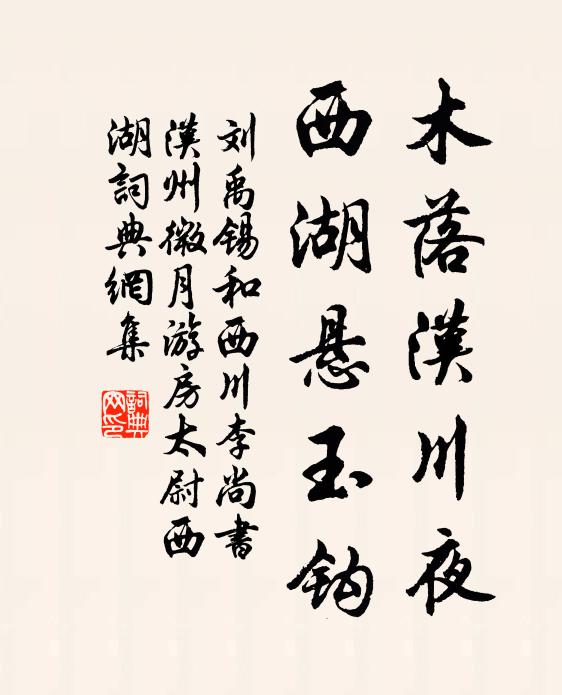 木落漢川夜
西湖悬玉钩
刘禹锡和西川李尚書
漢州微月游房太尉西
湖詞典網集
詞典网印